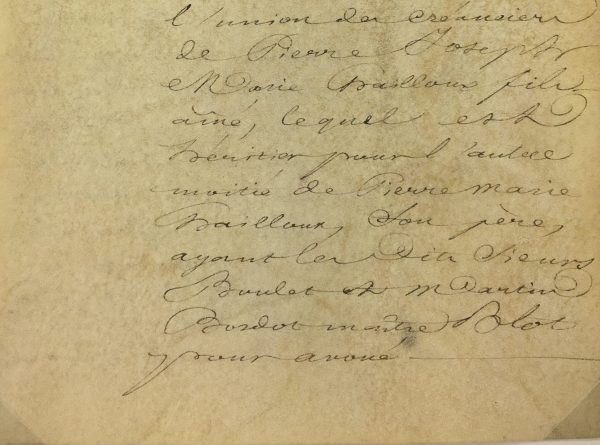 l'union des créanciers
de Pierre Joseph
Marie Trailloux fils
aîné, lequel est
héritier pour l'autre
moitié de Pierre marie
Trailloux, Son père,
ayant les dits Sieurs
Boulet et Martin
Bordot maître Blot
pour avoué